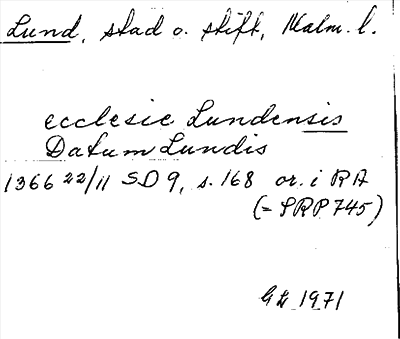 Lund, stad o. stift, Malm. l.
ecclesie Lundensis
Datum Lundis
1366 22/11 SD 9, s. 168 or. i RA
(= SRP 745)
GL 1971